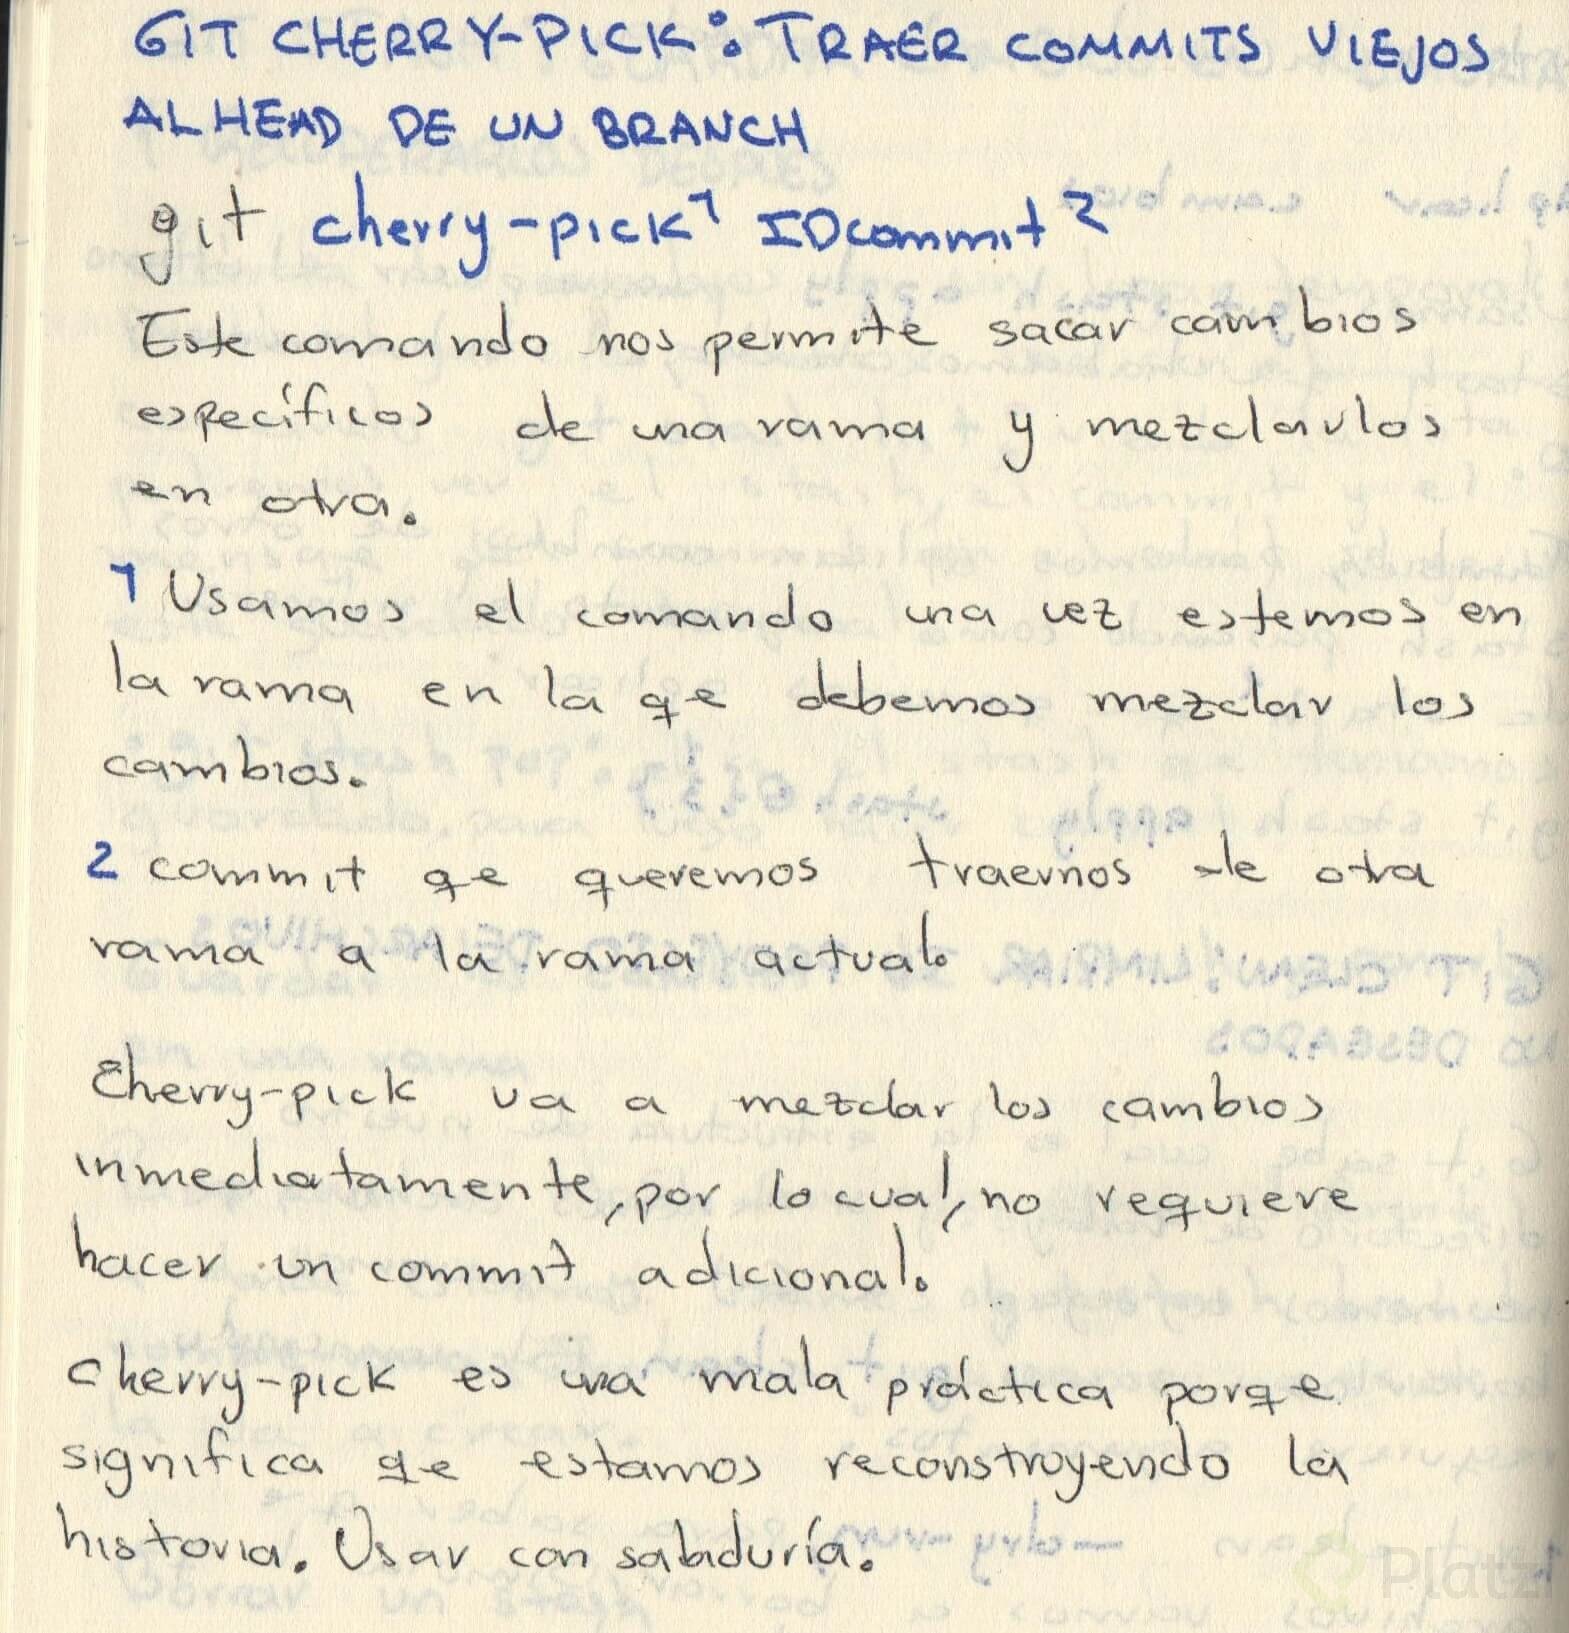 GIT CHERRY-PICK: TRAER COMMITS VIEJOS
AL HEAD DE UN BRANCH
git cherry-pick¹ IDcommit²
Este comando nos permite sacar cambios
específicos de una rama y mezclarlos
en otra.
1 Usamos el comando una vez estemos en
la rama en la qe debemos mezclar los
cambios.
2 commit qe queremos traernos de otra
rama a la rama actual.
Cherry-pick va a mezclar los cambios
inmediatamente, por lo cual, no requiere
hacer un commit adicional.
Cherry-pick es una mala práctica porqe
significa qe estamos reconstruyendo la
historia. Usar con sabiduría.
Platzi